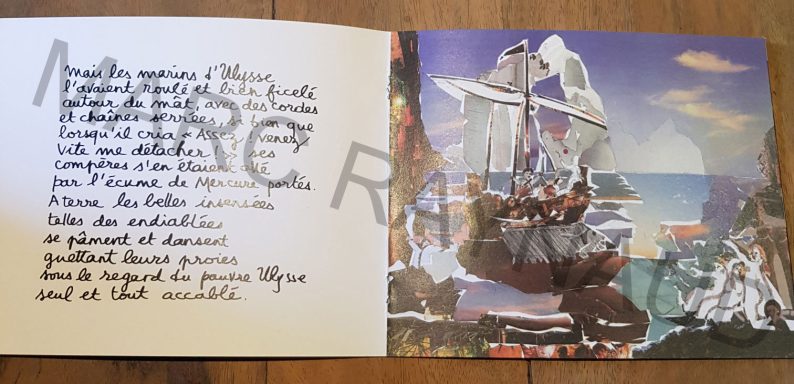 mais les marins d'Ulysse
l'avaient roulé et bien ficelé
autour du mât, avec des cordes
et chaînes serrées, si bien que
lorsqu'il cria « Assez ! venez
vite me détacher » ses
compères s'en étaient allé
par l'écume de Mercure portés.
A terre les belles insensées
telles des endiablées
se pâment et dansent
guettant leurs proies
sous le regard du pauvre Ulysse
seul et tout accablé.
MARC RAYNAUD